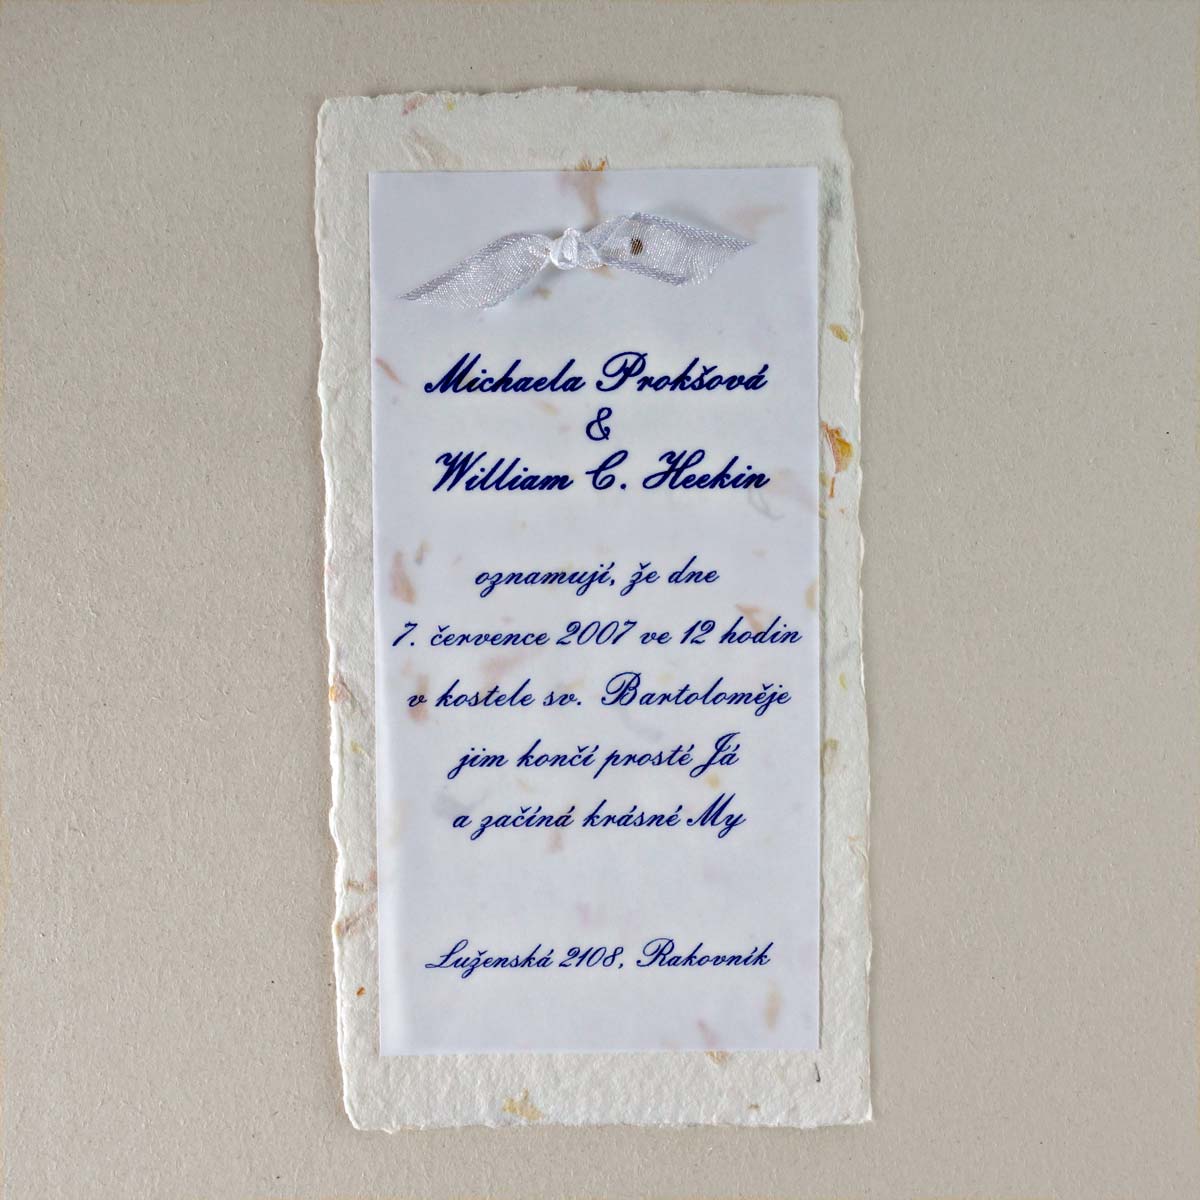 Michaela Prokšová
&
William C. Heekin
oznamují, že dne
7. července 2007 ve 12 hodin
v kostele sv. Bartoloměje
jim končí prosté Já
a začíná krásné My
Luženská 2108, Rakovník